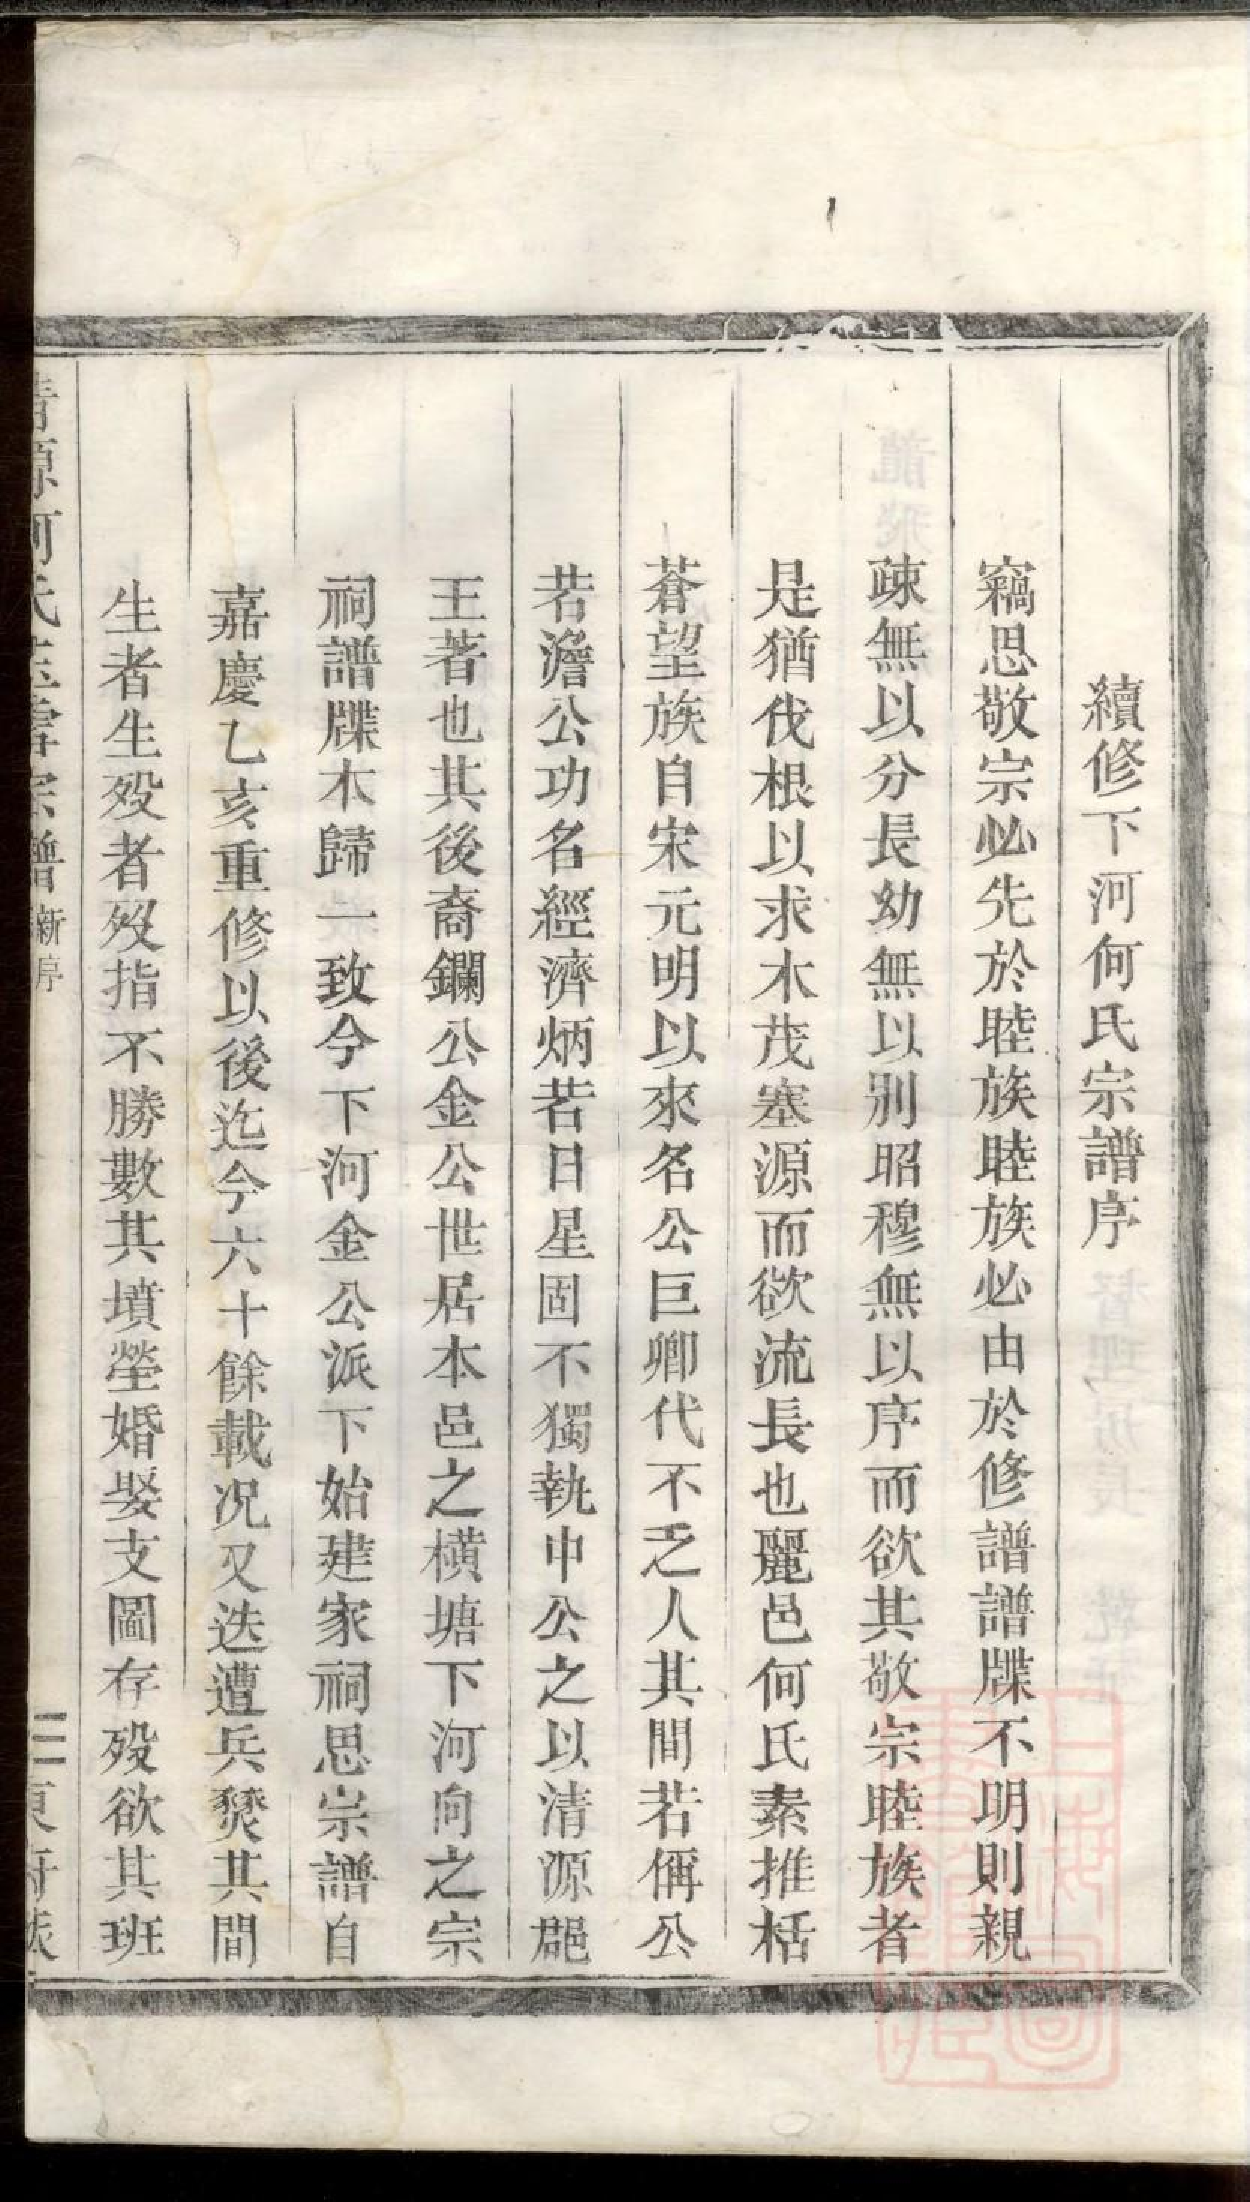 續修下河何氏宗譜序
竊思敬宗必先於睦族睦族必由於修譜譜牒不明則親
疎無以分長幼無以別昭穆無以序而欲其敬宗睦族者
是猶伐根以求木茂塞源而欲流長也麗邑何氏素推栝
蒼望族自宋元明以來名公巨卿代不乏人其間若偁公
若澹公功名經濟炳若日星固不獨執中公之以清源郡
王著也其後裔鑭公金公世居本邑之橫塘下河向之宗
祠譜牒木歸一致今下河金公派下始建家祠思宗譜自
嘉慶乙亥重修以後迄今六十餘載况又迭遭兵燹其間
生者生歿者歿指不勝數其墳塋婚娶支圖存歿欲其班
清源何氏宗譜 新序 三
上海圖書館藏